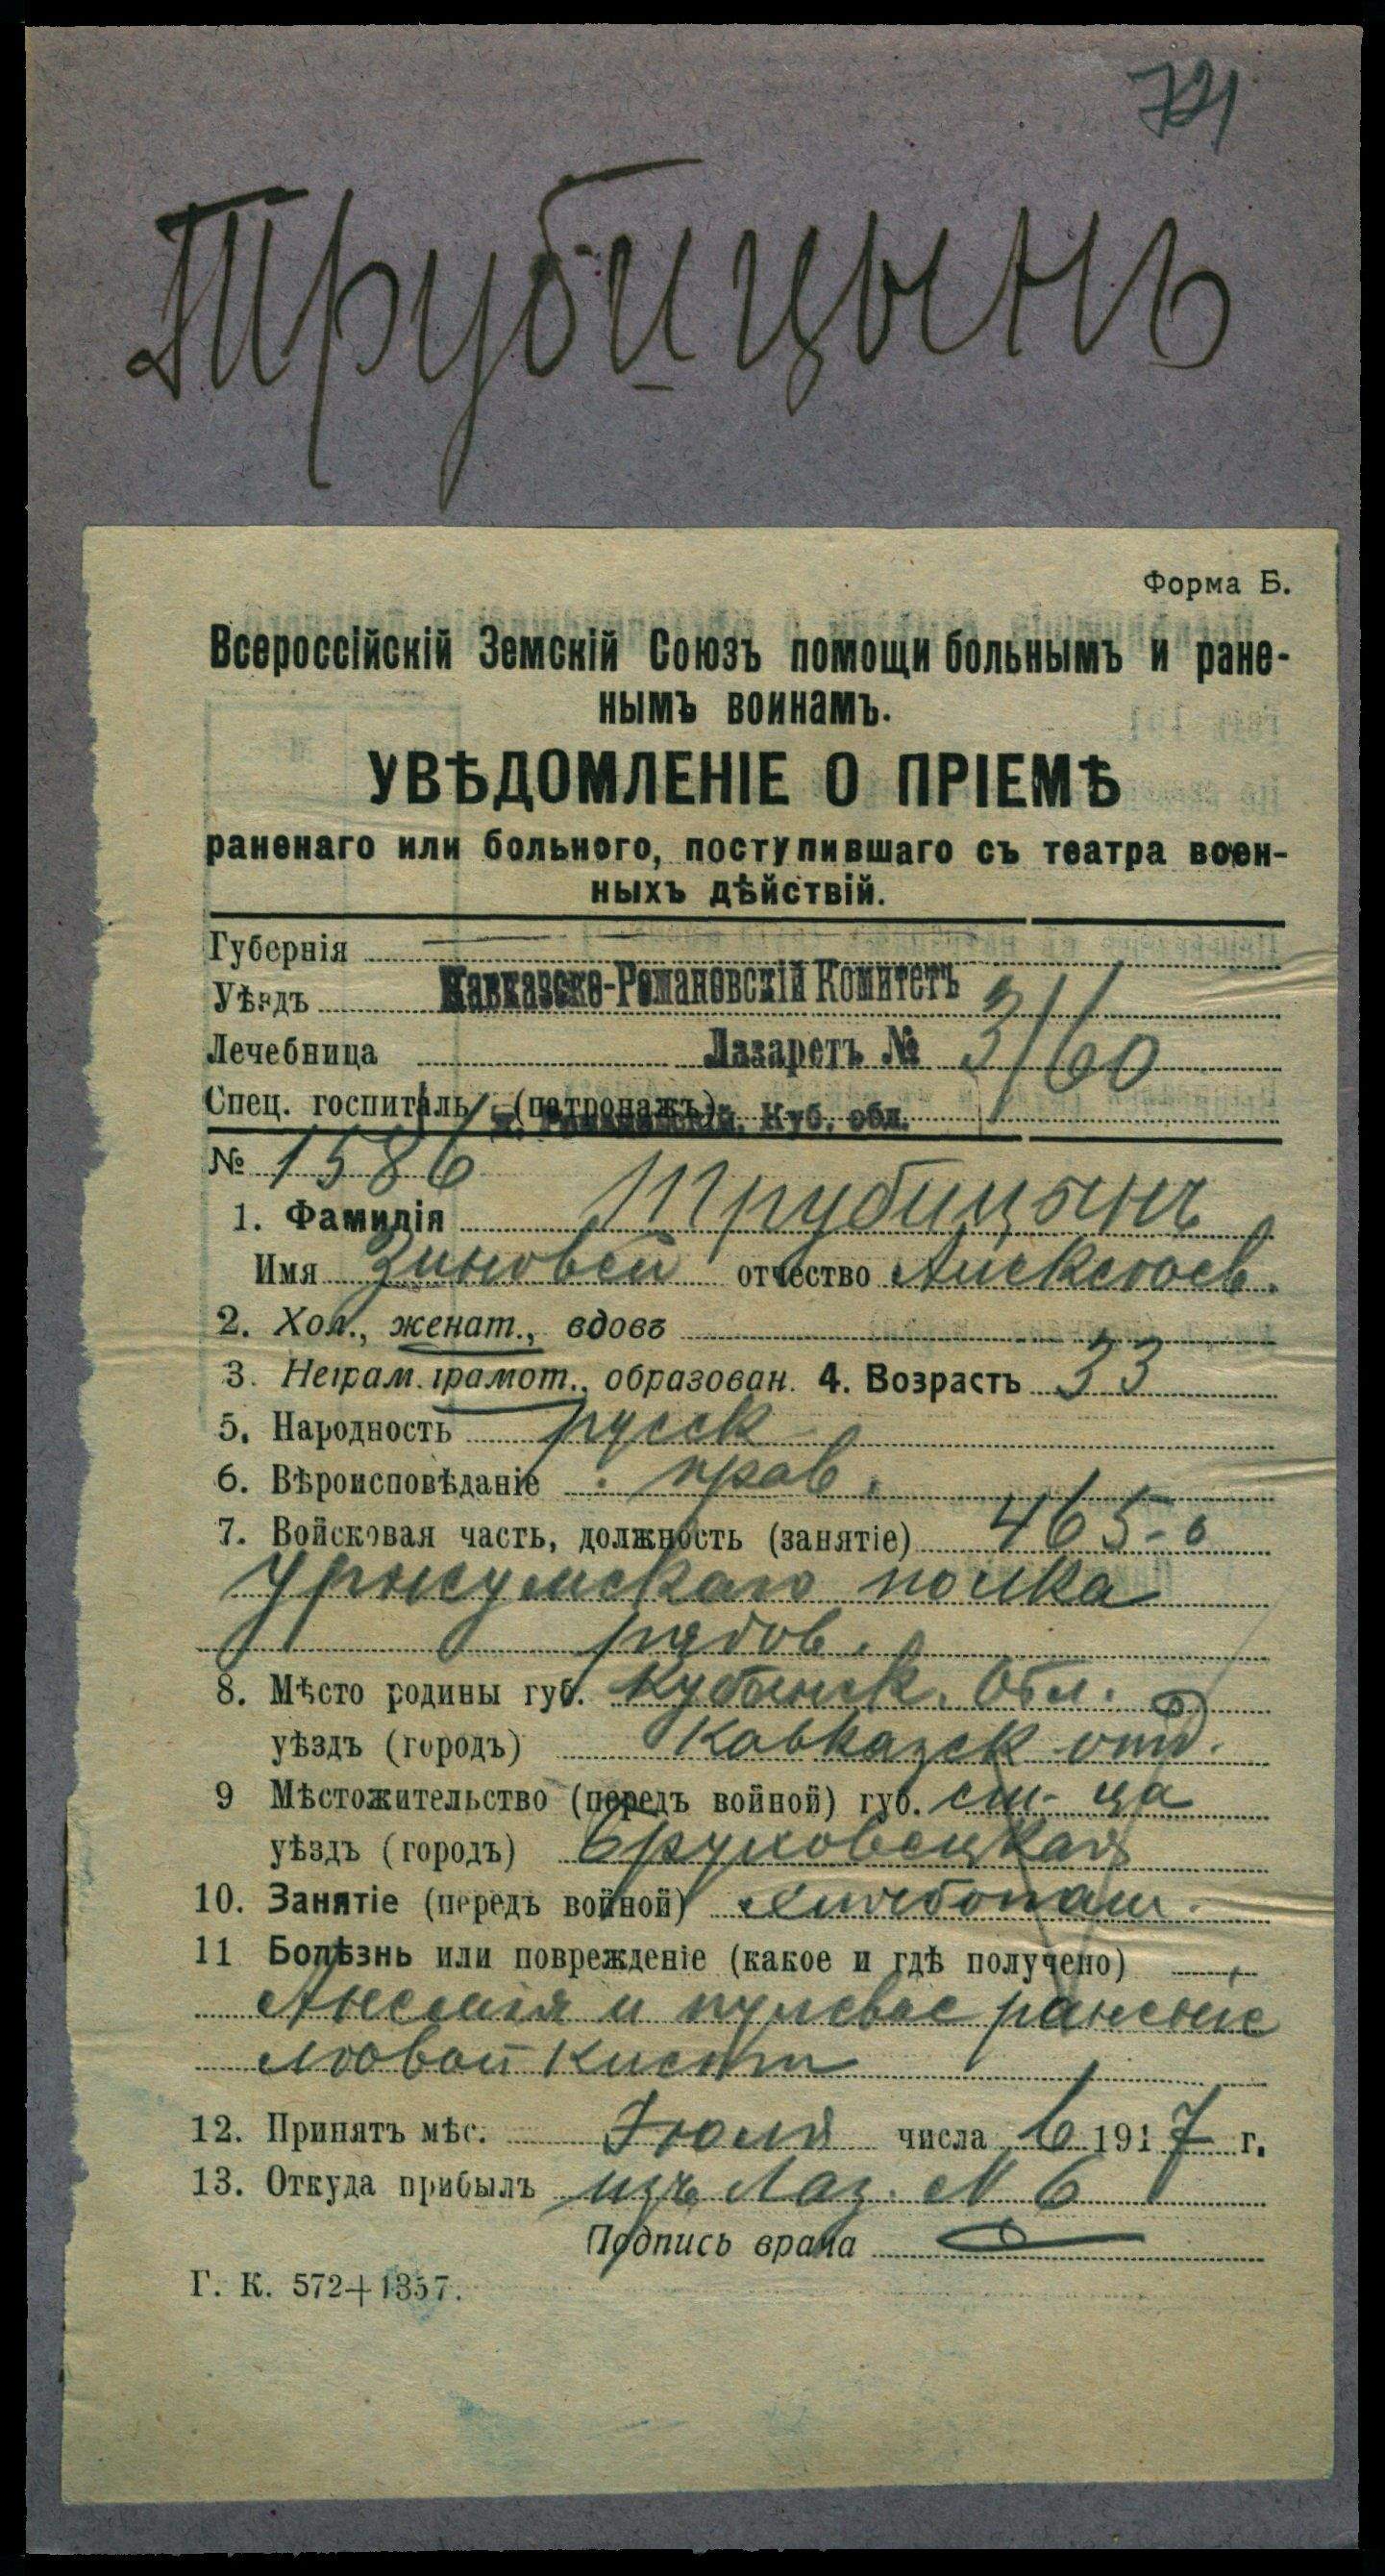 721
Трубицынъ
Форма Б.
Всероссійскій Земскій Союзъ помощи больнымъ и ране-
нымъ воинамъ.
УВѢДОМЛЕНІЕ О ПРІЕМѢ
раненаго или больного, поступившаго съ театра воен-
ныхъ дѣйствій.
Губернія
Уѣздъ Кавказско-Романовскій Комитетъ
Лечебница Лазаретъ № 3/60
Спец. госпиталь (патронажъ) х. Романовскій, Куб. обл.
№ 1586
1. Фамилія Трубицынъ
Имя Зиновей отчество Алексѣев.
2. Хол., женат., вдовъ
3. Неграм. грамот., образован. 4. Возрастъ 33
5. Народность русск
6. Вѣроисповѣданіе прав.
7. Войсковая часть, должность (занятіе) 465-о
Уржумскаго полка
рядов.
8. Мѣсто родины губ. Кубанск. Обл.
уѣздъ (городъ) Кавказск отд.
9 Мѣстожительство (передъ войной) губ. ст-ца
уѣздъ (городъ) Бруховецкая
10. Занятіе (передъ войной) хлѣбопаш.
11 Болѣзнь или поврежденіе (какое и гдѣ получено)
Анемія и пулевое раненіе
лѣвой кисти
12. Принятъ мѣс. Іюля числа 6 1917 г.
13. Откуда прибылъ изъ Лаз. № 6
Подпись врача
Г. К. 572+1357.